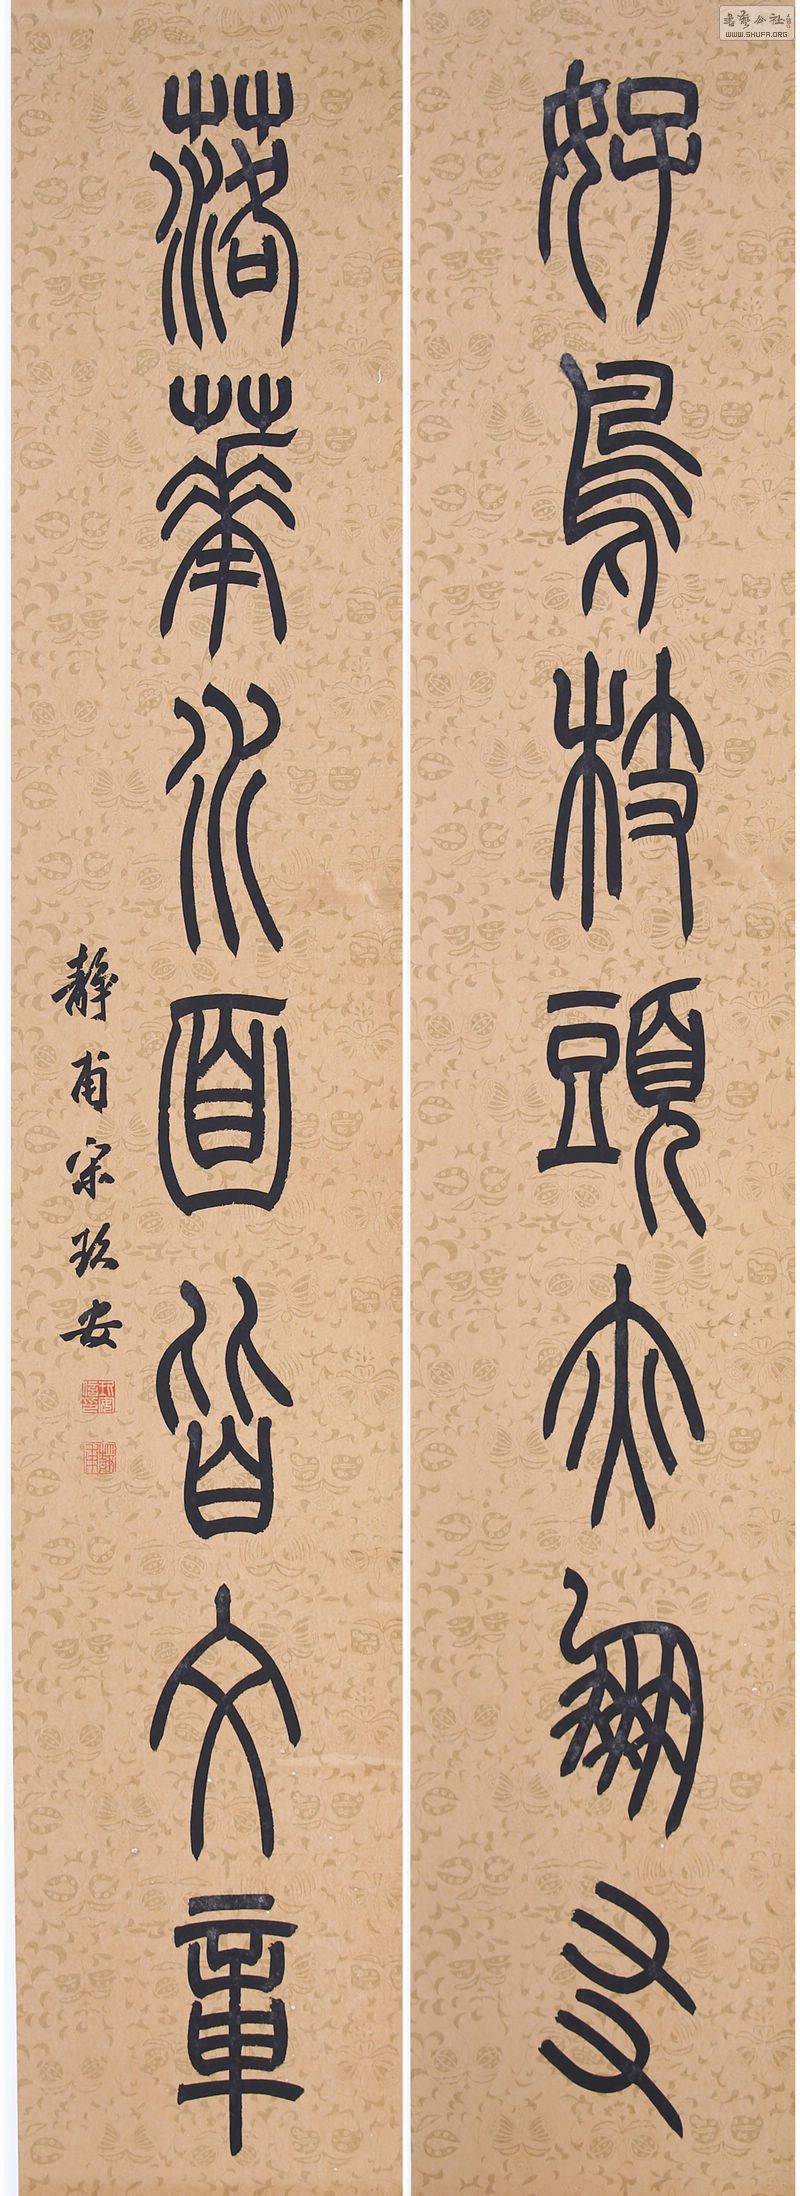 好鳥枝頭亦朋友
落華水面皆文章
靜甫宗玖安
書藝公社
WWW.SHUFA.ORG